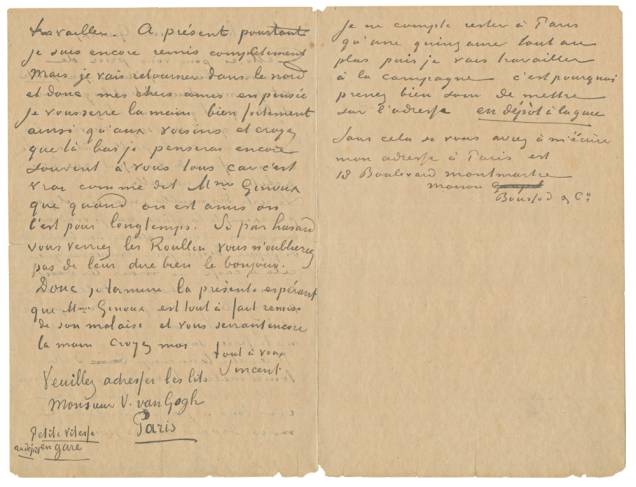 travailler. A présent pourtant
je suis encore remis complètement
Mais je vais retourner dans le nord
et donc mes chers amis en pensée
je vous serre la main bien fortement
ainsi qu'aux voisins et croyez
que là bas je penserai encore
souvent à vous tous car c'est
vrai comme dit Mme Ginoux
que quand on est amis on
l'est pour longtemps. Si par hasard
vous verrez les Roullin vous n'oublierez
pas de leur dire bien le bonjour.
Donc je termine la présente espérant
que Mme Ginoux est tout à fait remise
de son malaise et vous serrant encore
la main croyez moi
tout à vous
Vincent
Veuillez adresser les lits
Monsieur V. van Gogh
Paris
Petite vitesse
en gare
Je ne compte rester à Paris
qu'une quinzaine tout au
plus puis je vais travailler
à la campagne c'est pourquoi
prenez bien soin de mettre
sur l'adresse en dépôt à la gare
Sans cela si vous avez à m'écrire
mon adresse à Paris est
19 Boulevard montmartre
maison
Boussod & Cie